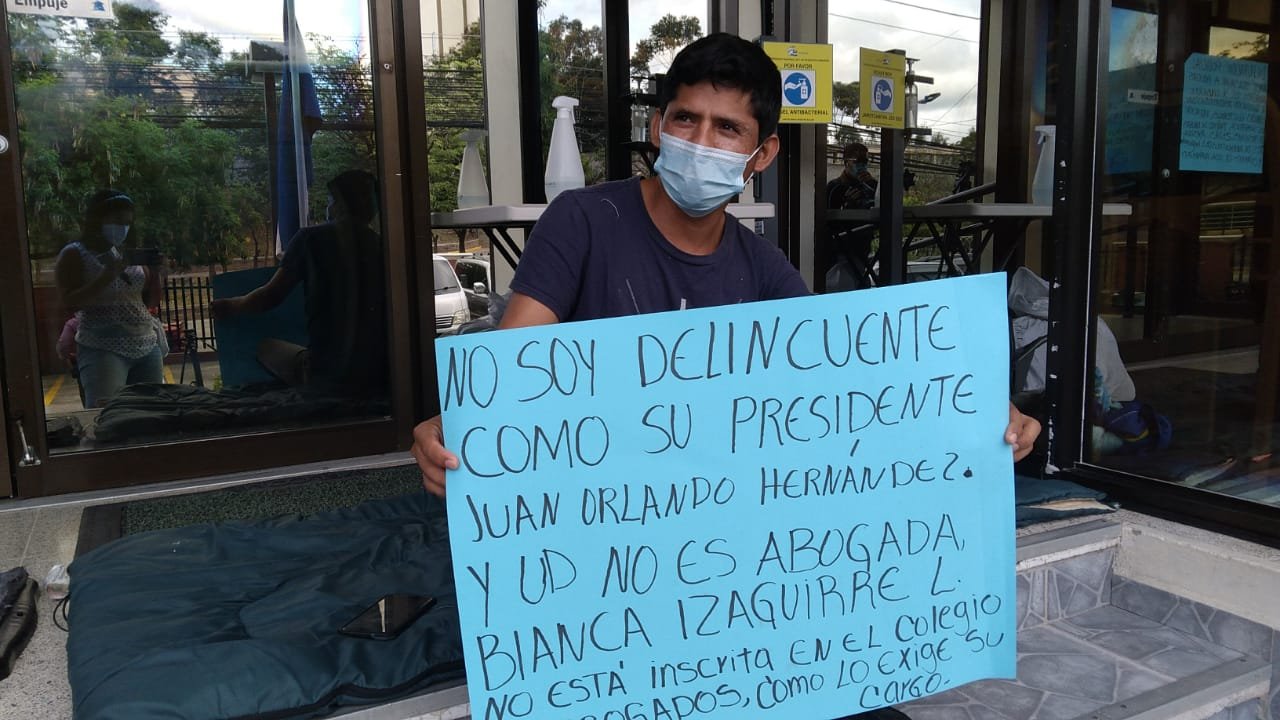 Empuje
POR FAVOR
GEL ANTIBACTERIAL
NO SOY DELINCUENTE
COMO SU PRESIDENTE
JUAN ORLANDO HERNÁNDEZ.
Y UD NO ES ABOGADA,
BIANCA IZAGUIRRE L.
NO ESTÁ inscrita EN EL Colegio
ABOGADOS, como LO EXIGE SU
CARGO.